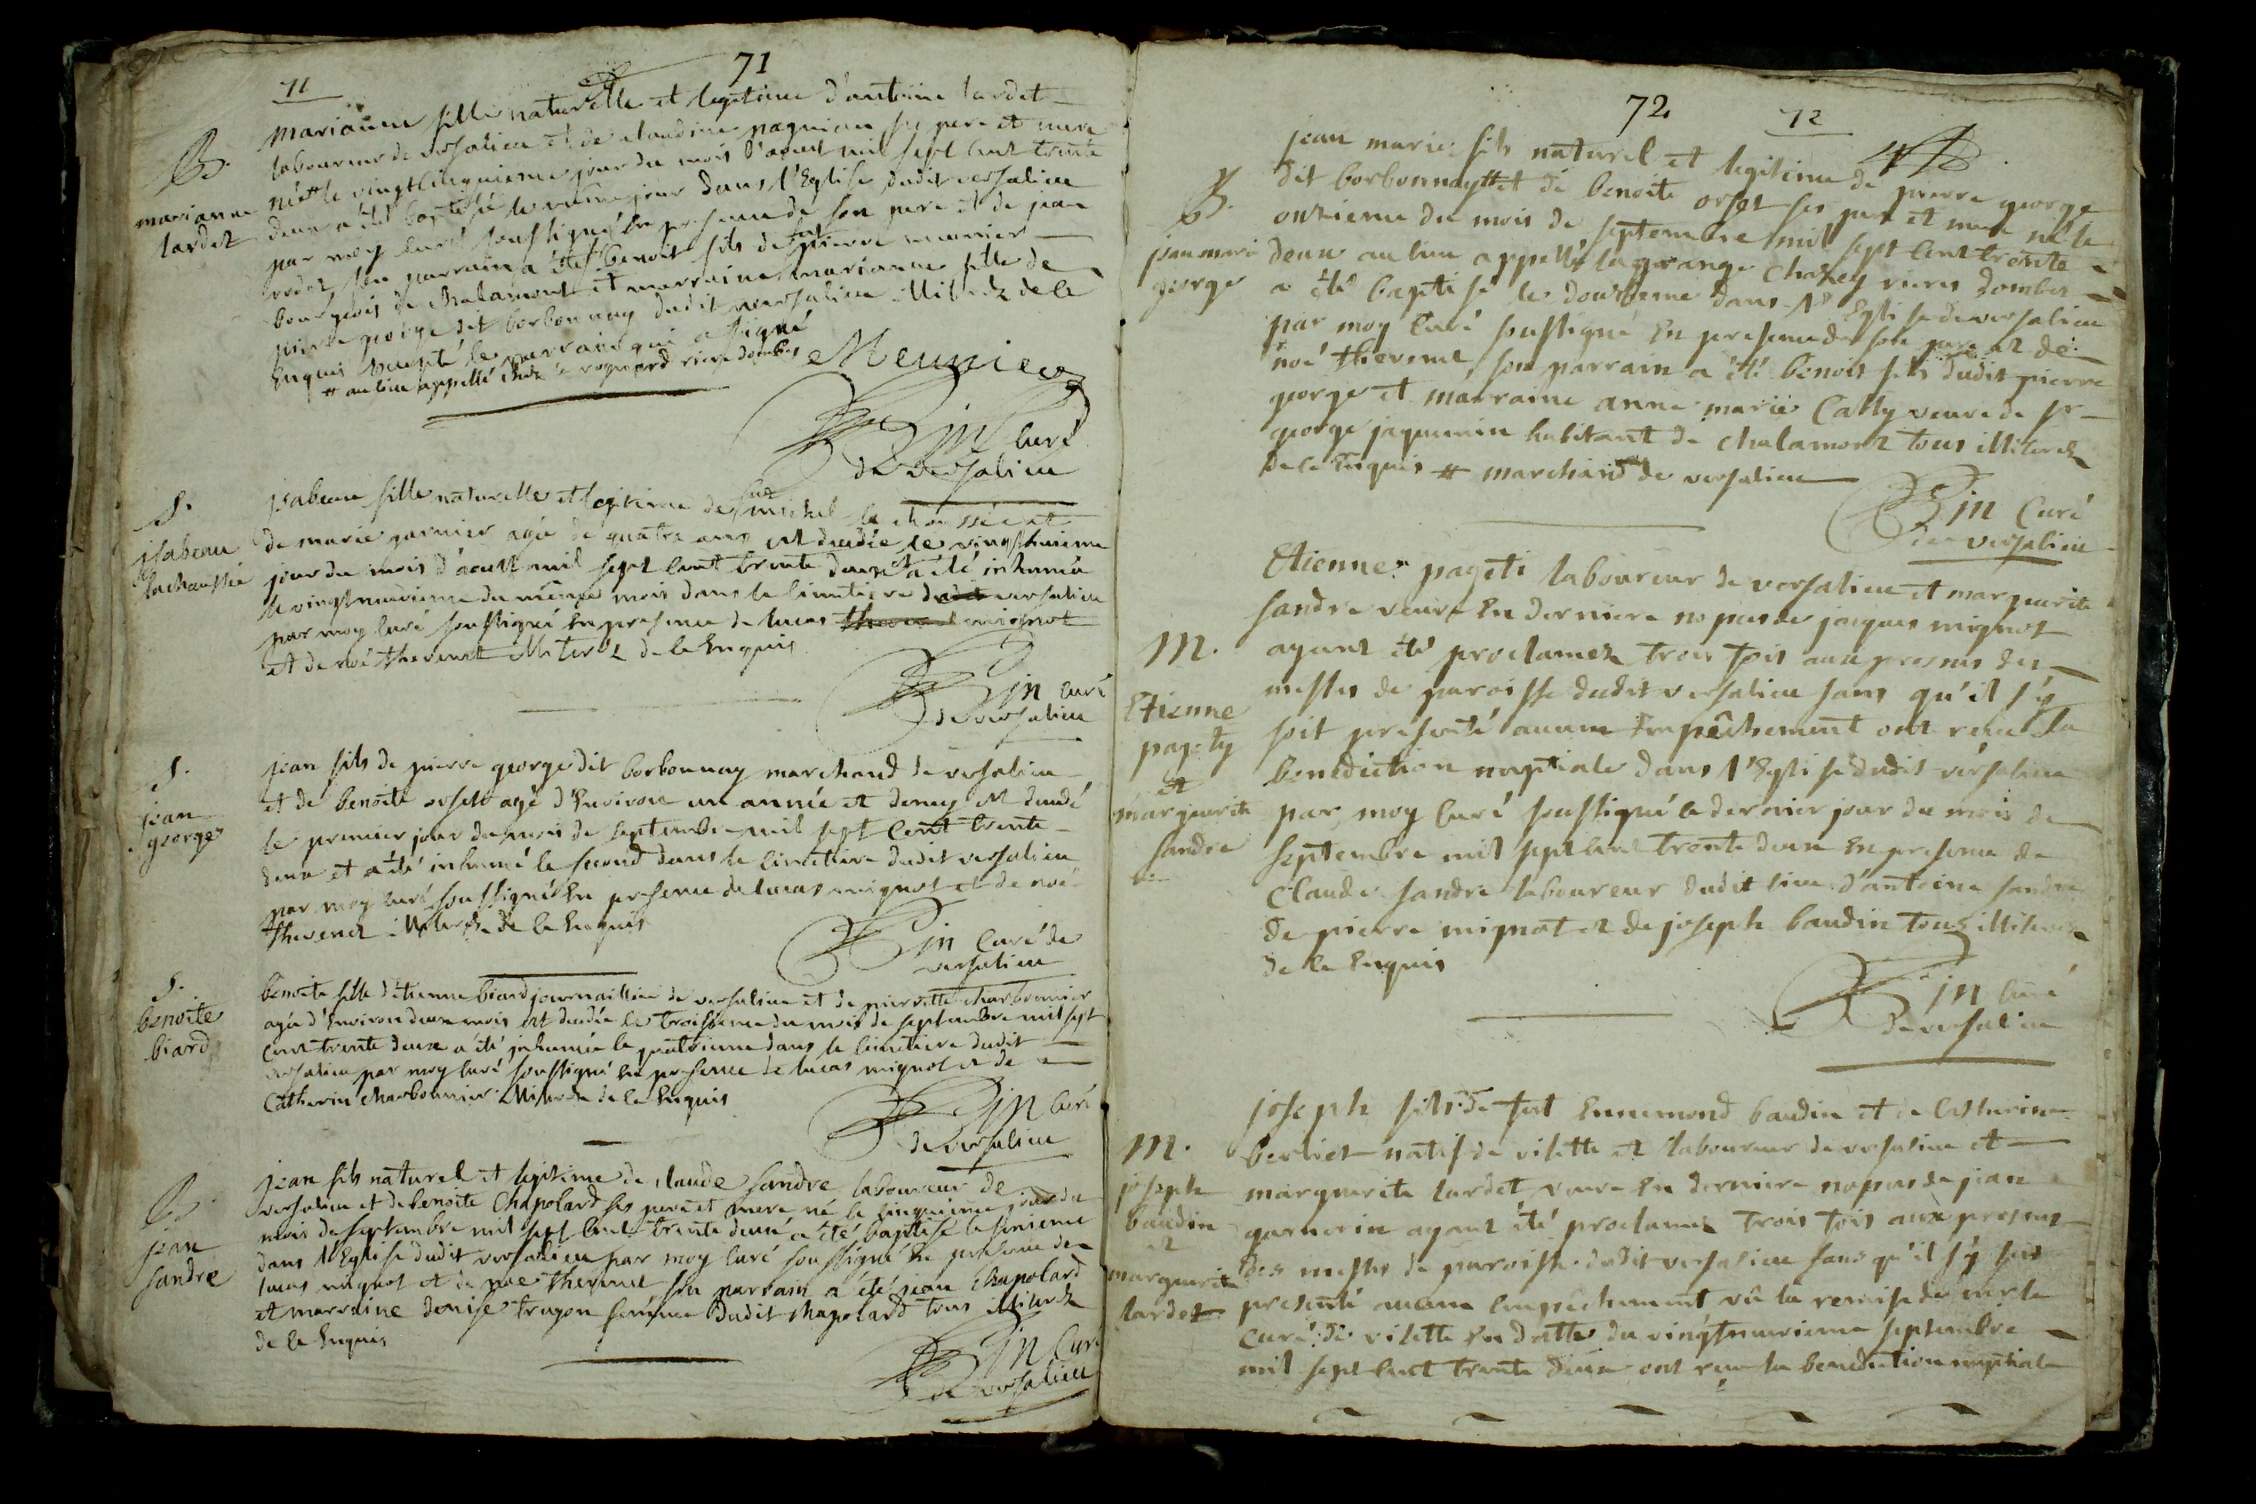 71
71
B.
marianne
lardet
marianne fille naturelle et legitime d'antoine lardet
laboureur de versalieu et de claudine pagnion ses pere et mere
née # le vingt cinquieme jour du mois d'aout mil sept cent trente
deux a été baptisée le même jour dans l'Eglise dudit versalieu
par moy curé soussigné En presence de son pere et de jean
lardet son parrain a été benoit fils de pierre meunier
bourgeois de chalamont et marraine marianne fille de
pierre george dit borbonnay dudit versalieu illiterdz de ce
Enquis Excepté le parrain qui a signé
# au lieu appellé chez le rognard riere dombes
Meunier
Bin curé
de versalieu
S.
isabeau
lachaussée
isabeau fille naturelle et legitime de feu michel la chaussée et
de marie garnier agée de quatre ans est decedée le vingthuitieme
jour du mois d'aoust mil sept cent trente deux et a été inhumée
le vingtneuvieme du même mois dans le cimetiere de versalieu
par moy curé soussigné En presence de lucas mignot
et de noé thevenet illiterez de ce Enquis
Bin curé
de versalieu
S.
jean
george
jean fils de pierre george dit borbonnay marchand de versalieu
et de benoite orset agé d'Environ un année et demy est decedé
le premier jour du mois de septembre mil sept cent trente
deux et a été inhumé le second dans le cimetiere dudit versalieu
par moy curé soussigné En presence de lucas mignot et de noé
thevenet illiterdz de ce Enquis
Bin curé de
versalieu
S.
benoite
biard
benoite fille d'étienne biard journaillier de versalieu et de pierrette charbonnier
agée d'Environ deux mois est decedée le troisieme du mois de septembre mil sept
cent trente deux a été inhumée le quatrieme dans le cimetiere dudit
versalieu par moy curé soussigné En presence de lucas mignot et de
Catherin charbonnier illiterdz de ce Enquis
Bin curé
de versalieu
B.
jean
sandre
jean fils naturel et legitime de claude sandre laboureur de
versalieu et de benoite Chapolard ses pere et mere né le cinquieme jour du
mois de septembre mil sept cent trente deux a été baptisé le sixieme
dans l'Eglise dudit versalieu par moy curé soussigné En presence de
lucas mignot et de noe thevenet son parrain a été jean Chapolard
et marraine denise trugon femme dudit chapolard tous illiterdz
de ce Enquis
Bin Curé
de versalieu
72
72
B.
jean marie
george
jean marie fils naturel et legitime de pierre george
dit borbonnay # et de benoite orset ses pere et mere né le
onzieme du mois de septembre mil sept cent trente
deux au lieu appellé la grange Chazey riere dombes
a été baptisé le douzieme dans l'Eglise de versalieu
par moy Curé soussigné En presence de son pere et de
noé thevenet, son parrain a été benoit fils dudit pierre
george et marraine anne marie Catty veuve de sr
george jaquemin habitant de chalamont tous illiterdz
de ce Enquis # marchand de versalieu
Bin Curé
de versalieu
M.
Etienne
pagety
et
marguerite
sandre
Etienne pageti laboureur de versalieu et marguerite
sandre veuve En derniere nopces de jaques mignot
ayant été proclamez trois fois aux prosnes des
messes de paroisse dudit versalieu sans qu'il s'y
soit présenté aucun Empêchement ont reçu la
benediction nuptiale dans l'Eglise dudit versalieu
par moy curé soussigné le dernier jour du mois de
septembre mil sept cent trente deux En presence de
Claude sandre laboureur dudit lieu d'antoine sandre
de pierre mignot et de joseph baudin tous illiterez
de ce Enquis
Bin curé
de versalieu
M.
joseph
baudin
et
marguerite
lardet
joseph fils de feu Ennemond baudin et de Catherine
berliet natif de vilette et laboureur de versalieu et
marguerite lardet veuve En derniere nopces de jean
garnerin ayant été proclamez trois fois aux prosnes
des messes de paroisse dudit versalieu sans qu'il s'y soit
presenté aucun Empêchement vû la remise de mr le
Curé de vilette En datte du vingtneuvieme septembre
mil sept cent trente deux ont reçu la benediction nuptiale